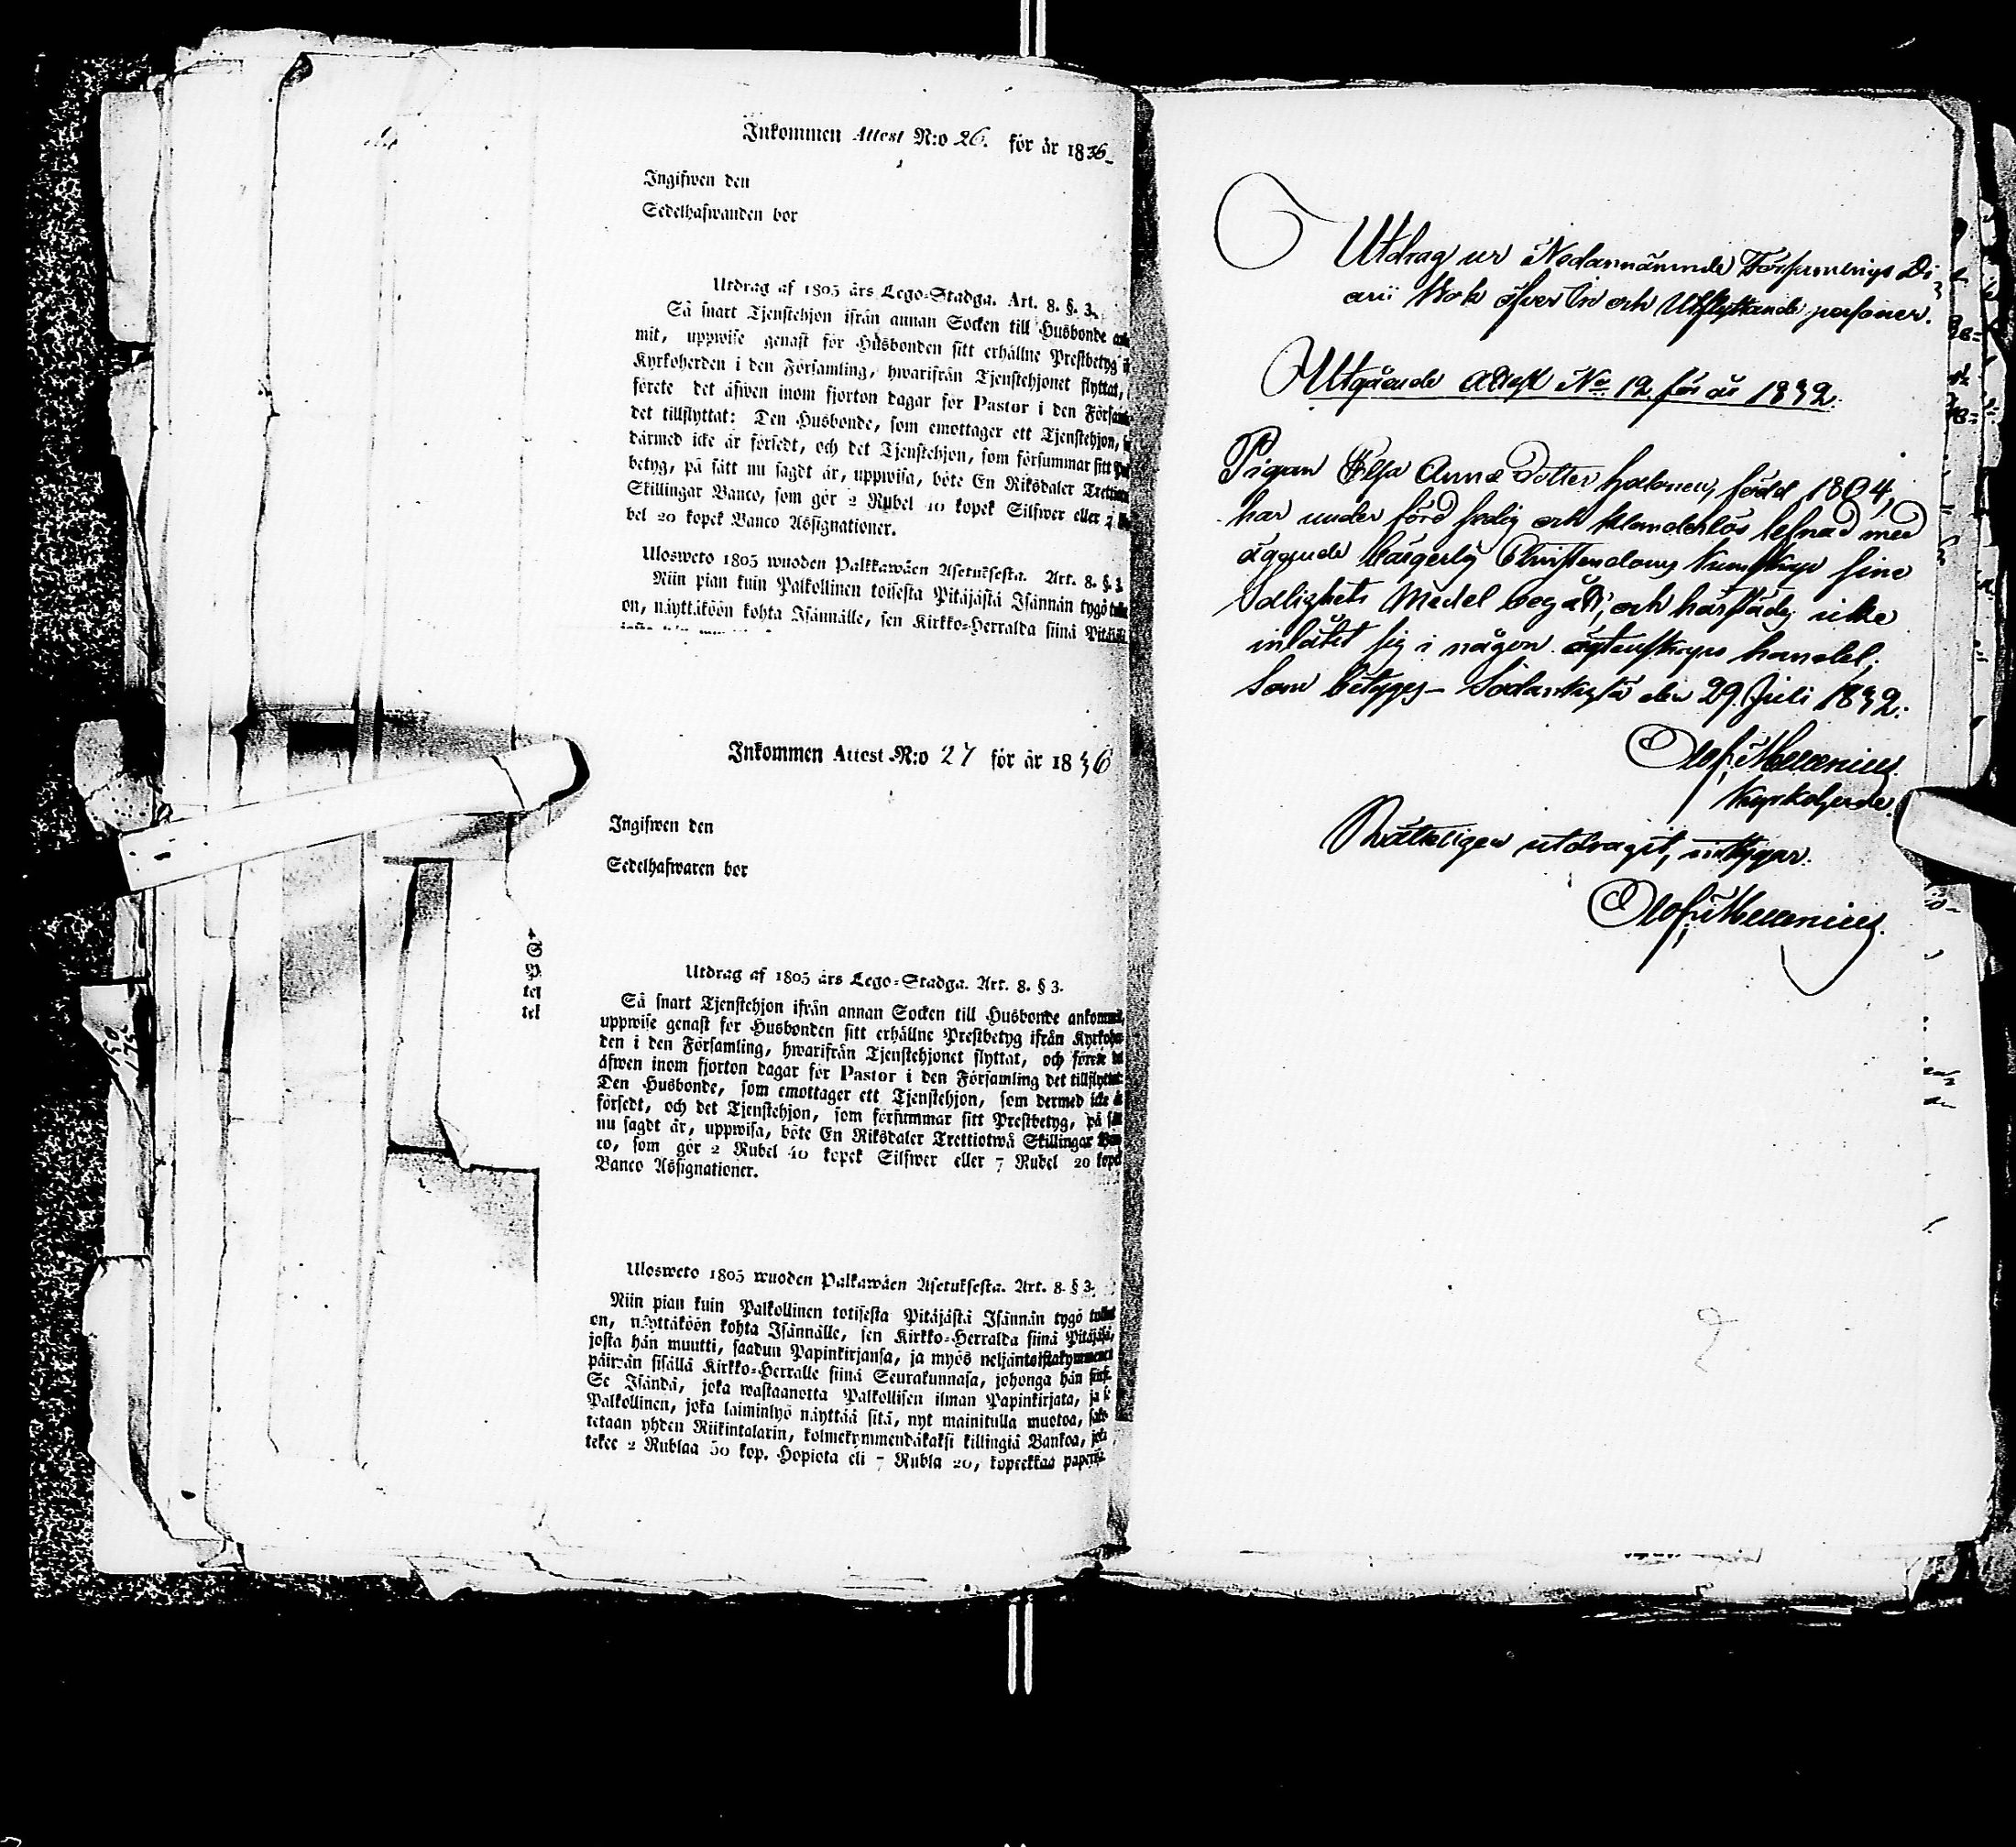 Inkommen Attest N:o 26. för år 1836
Ingifwen den
Sedelhafwanden bor
Utdrag af 1805 års Lego-Stadga. Art. 8. §. 3.
Så snart Tjenstehjon ifrån annan Socken till Husbonde
mit, uppwise genast för Husbonden sitt erhållne Prestbetyg
Kyrkoherden i den Församling, hwarifrån Tjenstehjonet flyttat,
förete det äfwen inom fjorton dagar för Pastor i den
det tillflyttat: Den Husbonde, som emottager ett Tjenstehjon,
därmed icke är försedt, och det Tjenstehjon, som försummar sitt
betyg, på sätt nu sagdt är, uppwisa, böte En Riksdaler
Skillingar Banco, som gör 2 Rubel 40 kopek Silfwer eller
bel 20 kopek Banco Assignationer.
Ulosweto 1805 wuoden Palkkawäen Asetuksesta. Art. 8. §. 3
Niin pian kuin Palkollinen toisesta Pitäjästä Isännän tygö
on, näyttäköön kohta Isännälle, sen Kirkko-Herralda siinä
Inkommen Attest N:o 27 för år 1836
Ingifwen den
Sedelhafwaren bor
S
P
tet
tek
Utdrag af 1805 års Lego-Stadga. Art. 8. § 3.
Så snart Tjenstehjon ifrån annan Socken till Husbonde ankommit,
uppwise genast för Husbonden sitt erhållne Prestbetyg ifrån
den i den Församling, hwarifrån Tjenstehjonet flyttat, och förete
äfwen inom fjorton dagar för Pastor i den Församling det
Den Husbonde, som emottager ett Tjenstehjon, som dermed icke
försedt, och det Tjenstehjon, som försummar sitt Prestbetyg, på
nu sagdt är, uppwisa, böte En Riksdaler Trettiotwå Skillingar
co, som gör 2 Rubel 40 kopek Silfwer eller 7 Rubel 20
Banco Assignationer.
Ulosweto 1805 wuoden Palkawäen Asetuksesta. Art. 8. § 3.
Niin pian kuin Palkollinen totisesta Pitäjästä Isännän tygö
on, näyttäköön kohta Isännälle, sen Kirkko-Herralda siinä
josta hän muutti, saadun Papinkirjansa, ja myös neljäntoistakymmenet
päiwän sisällä Kirkko-Herralle siinä Seurakunnasa, johonga hän
Se Isändä, joka wastaanotta Palkollisen ilman Papinkirjata, ja
Palkollinen, joka laiminlyö näyttää sitä, nyt mainitulla muotoa,
tetaan yhden Riikintalarin, kolmekymmendäkaksi killingiä Bankoa,
tekee 2 Rublaa 50 kop. Hopiota eli 7 Rubla 20, kopeekkaa
Utdrag ur Nedannämnde Församlings Di
arii Bok öfver In och Utflyttande personer.
Utgående Attest No. 12 för år 1832.
Pigan Elsa Anna Dotter Halonen, född 1804,
har under förd fredig och klanderlös lefnad med
ägande bärgerlig Christendoms kunskap sina
Salighets Medel begått, och härstädes icke
inlåtit sig i någon ägtenskaps handel;
Som betyges Sodankylä den 29 Juli 1832.
Olof Mellenius
Kyrkoherde
Riktteligen utdragit, intygar.
Olof Mellenius.